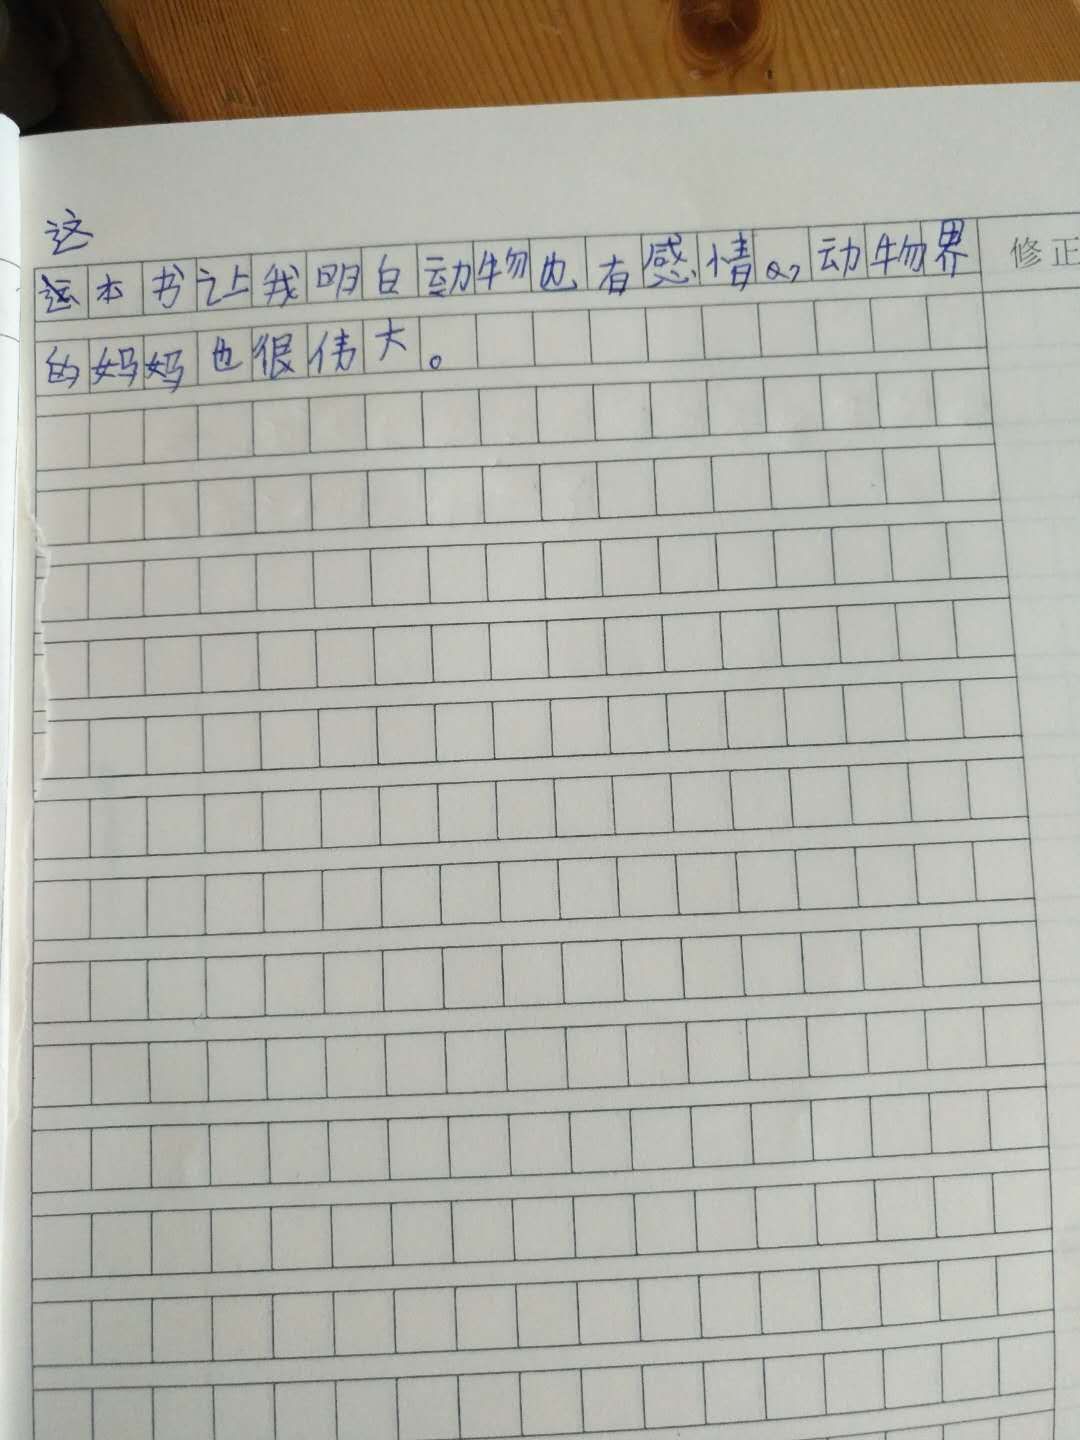 这
这本书让我明白动物也有感情。，动物界
修正
的妈妈也很伟大。